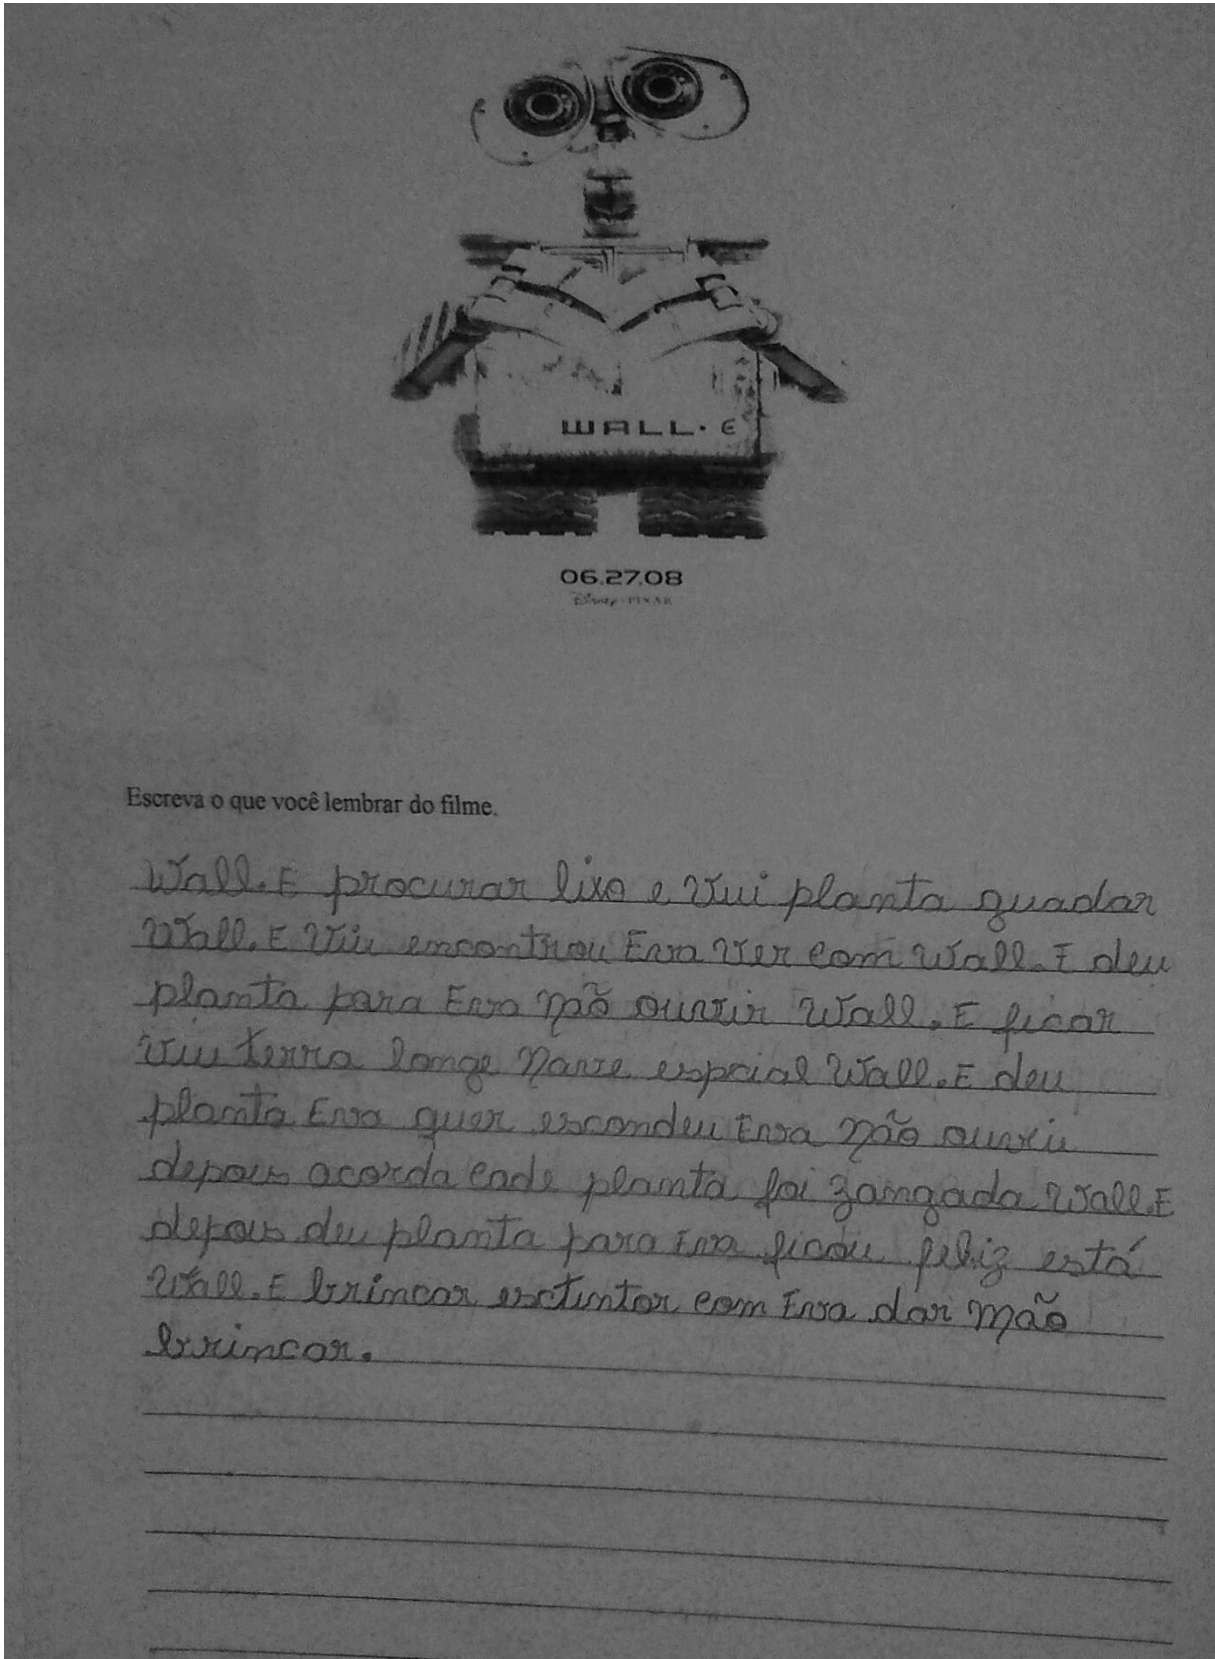 WALL·E
06.27.08
Disney·PIXAR
Escreva o que você lembrar do filme.
Wall.E procurar lixo e Vui planta guadar
Wall.E Viu encontrou Eva Ver com Wall.E deu
planta para Eva não ouvir Wall.E ficar
Viu terra longe nave espacial Wall.E deu
planta Eva quer escondeu Eva não ouviu
depois acorda cade planta foi zangada Wall.E
depois deu planta para Eva ficou feliz está
Wall.E brincar esctintor com Eva dar mão
brincar.